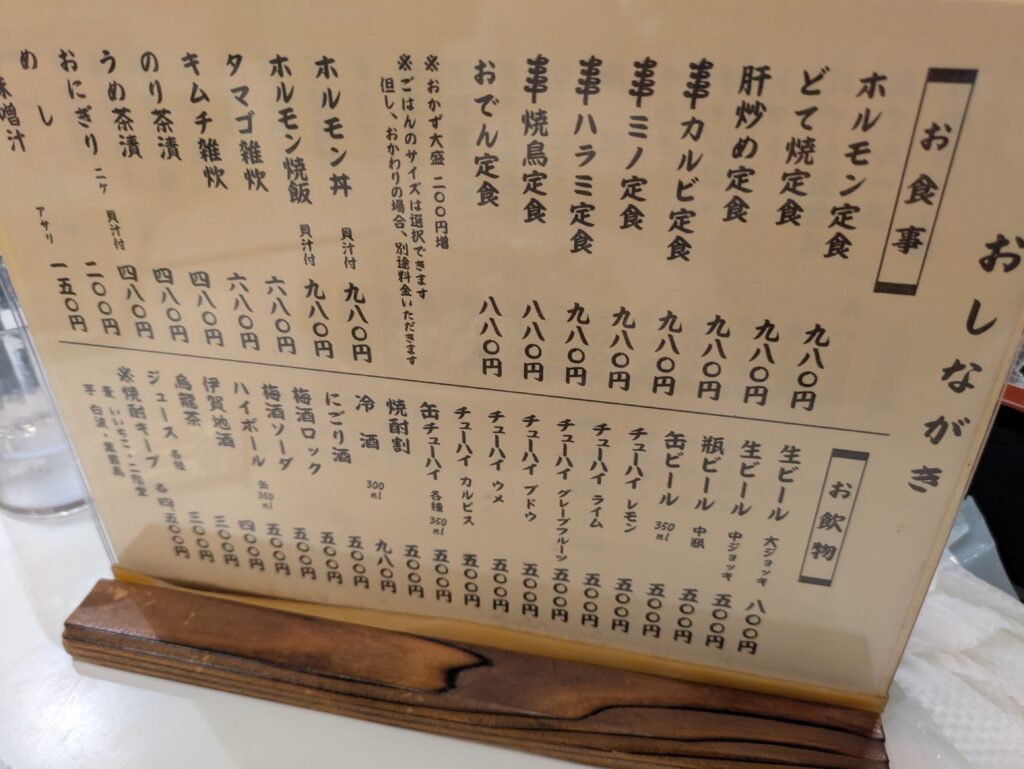 おしながき
お食事
ホルモン定食 九八〇円
どて焼定食 九八〇円
肝炒め定食 九八〇円
串カルビ定食 九八〇円
串ミノ定食 九八〇円
串ハラミ定食 九八〇円
串焼鳥定食 八八〇円
おでん定食 八八〇円
※おかず大盛 二〇〇円増
※ごはんのサイズは選択できます
但し、おかわりの場合、別途料金いただきます
ホルモン丼 貝汁付 九八〇円
ホルモン焼飯 貝汁付 九八〇円
タマゴ雑炊 六八〇円
キムチ雑炊 六八〇円
のり茶漬 四八〇円
うめ茶漬 四八〇円
おにぎり 二ヶ 貝汁付 四八〇円
めし 二〇〇円
味噌汁 アサリ 一五〇円
お飲物
生ビール 大ジョッキ 八〇〇円
生ビール 中ジョッキ 五〇〇円
瓶ビール 中瓶 五〇〇円
缶ビール 350ml 五〇〇円
チューハイ レモン 五〇〇円
チューハイ ライム 五〇〇円
チューハイ グレープフルーツ 五〇〇円
チューハイ ブドウ 五〇〇円
チューハイ ウメ 五〇〇円
チューハイ カルピス 五〇〇円
缶チューハイ 各種 350ml 五〇〇円
焼酎割 五〇〇円
冷酒 300ml 九八〇円
にごり酒 五〇〇円
梅酒ロック 五〇〇円
梅酒ソーダ 五〇〇円
ハイボール 缶350ml 五〇〇円
伊賀地酒 四〇〇円
烏龍茶 三〇〇円
ジュース 各種 三〇〇円
※焼酎キープ 各四、五〇〇円
麦 いいちこ・二階堂
芋 白波・黒霧島